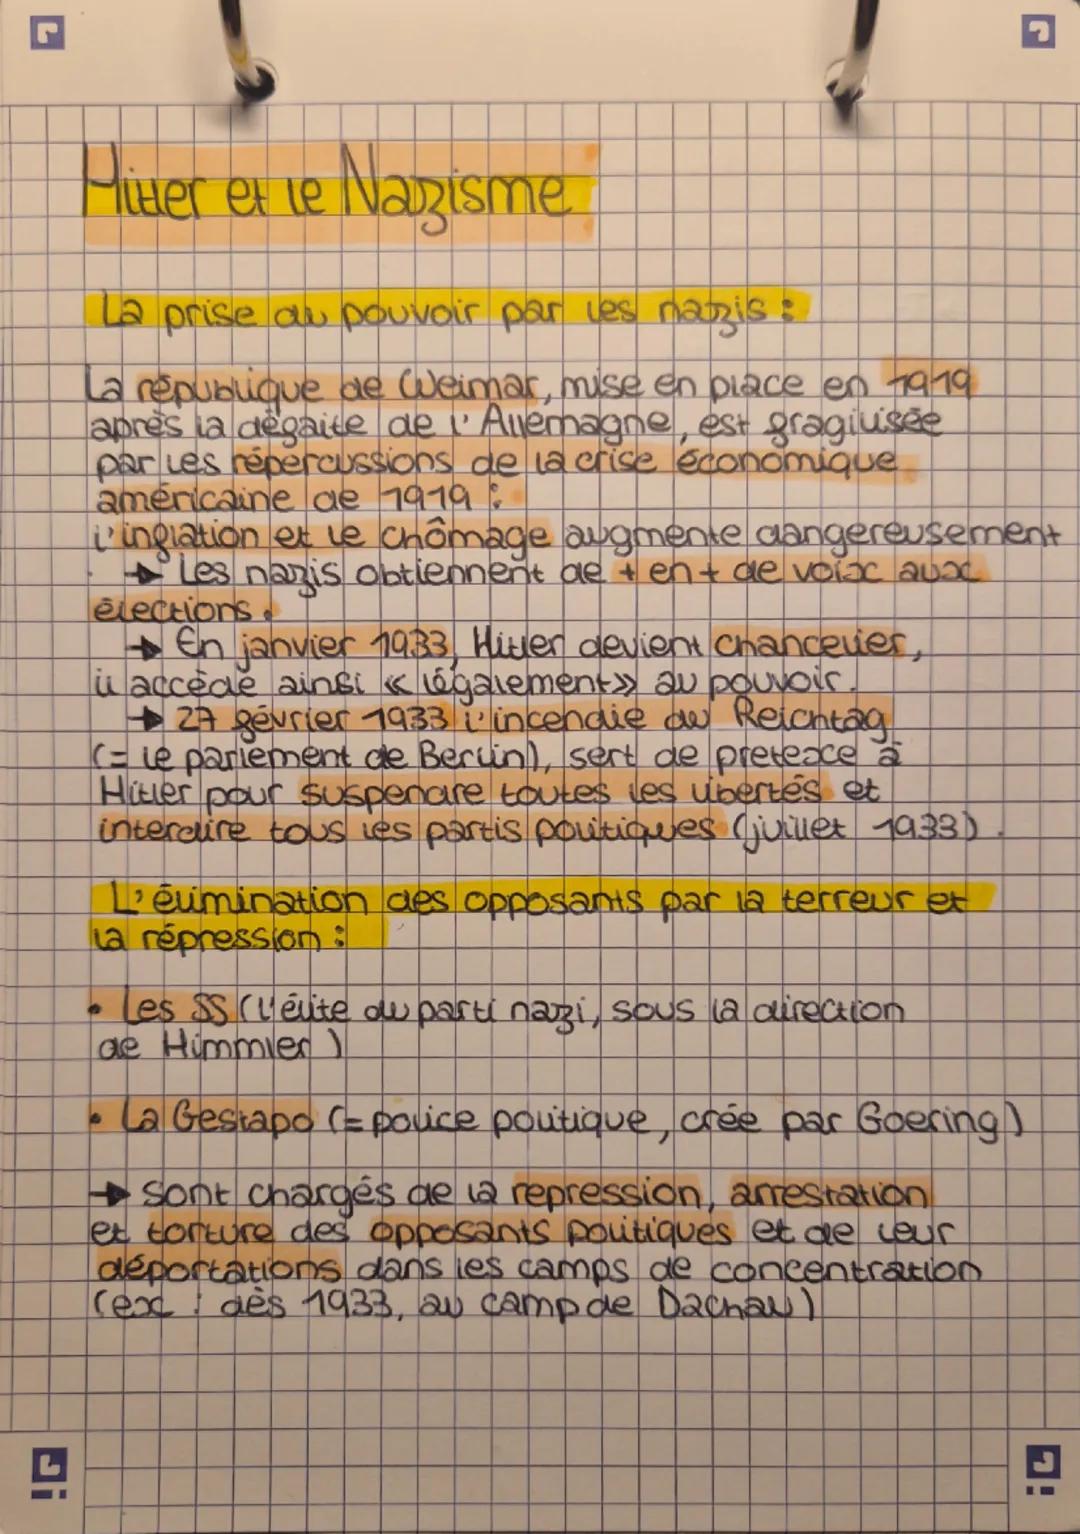 Hitler et le Nazisme
La prise au pouvoir par les nazis :
La république de Weimar, mise en place en 1919
après la défaite de l'Allemagne, est fragilisée
par les répercussions de la crise économique
américaine de 1919 :
l'inflation et le chômage augmente dangereusement
→ Les nazis obtiennent de + en + de voix aux
élections.
→ En janvier 1933, Hitler devient chancelier,
il accède ainsi « légalement » au pouvoir.
→ 27 février 1933 l'incendie du Reichtag
(= le parlement de Berlin), sert de pretexe à
Hitler pour suspendre toutes les libertés et
interdire tous les partis politiques (juillet 1933).
L'élimination des opposants par la terreur et
la répression :
• Les SS (l'élite du parti nazi, sous la direction
de Himmler)
• La Gestapo (= police politique, crée par Goering)
→ sont chargés de la repression, arrestation
et torture des opposants politiques et de leur
déportations dans les camps de concentration
(ex : dès 1933, au camp de Dachau)